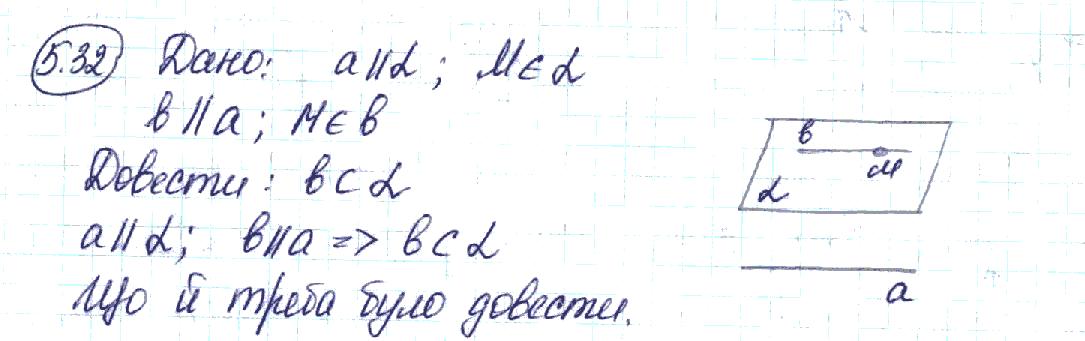 5.32 Дано: a∥α; M∈α
в∥a; M∈в
Довести: в⊂α
a∥α; в∥a => в⊂α
Що й треба було довести.
в
м
α
a